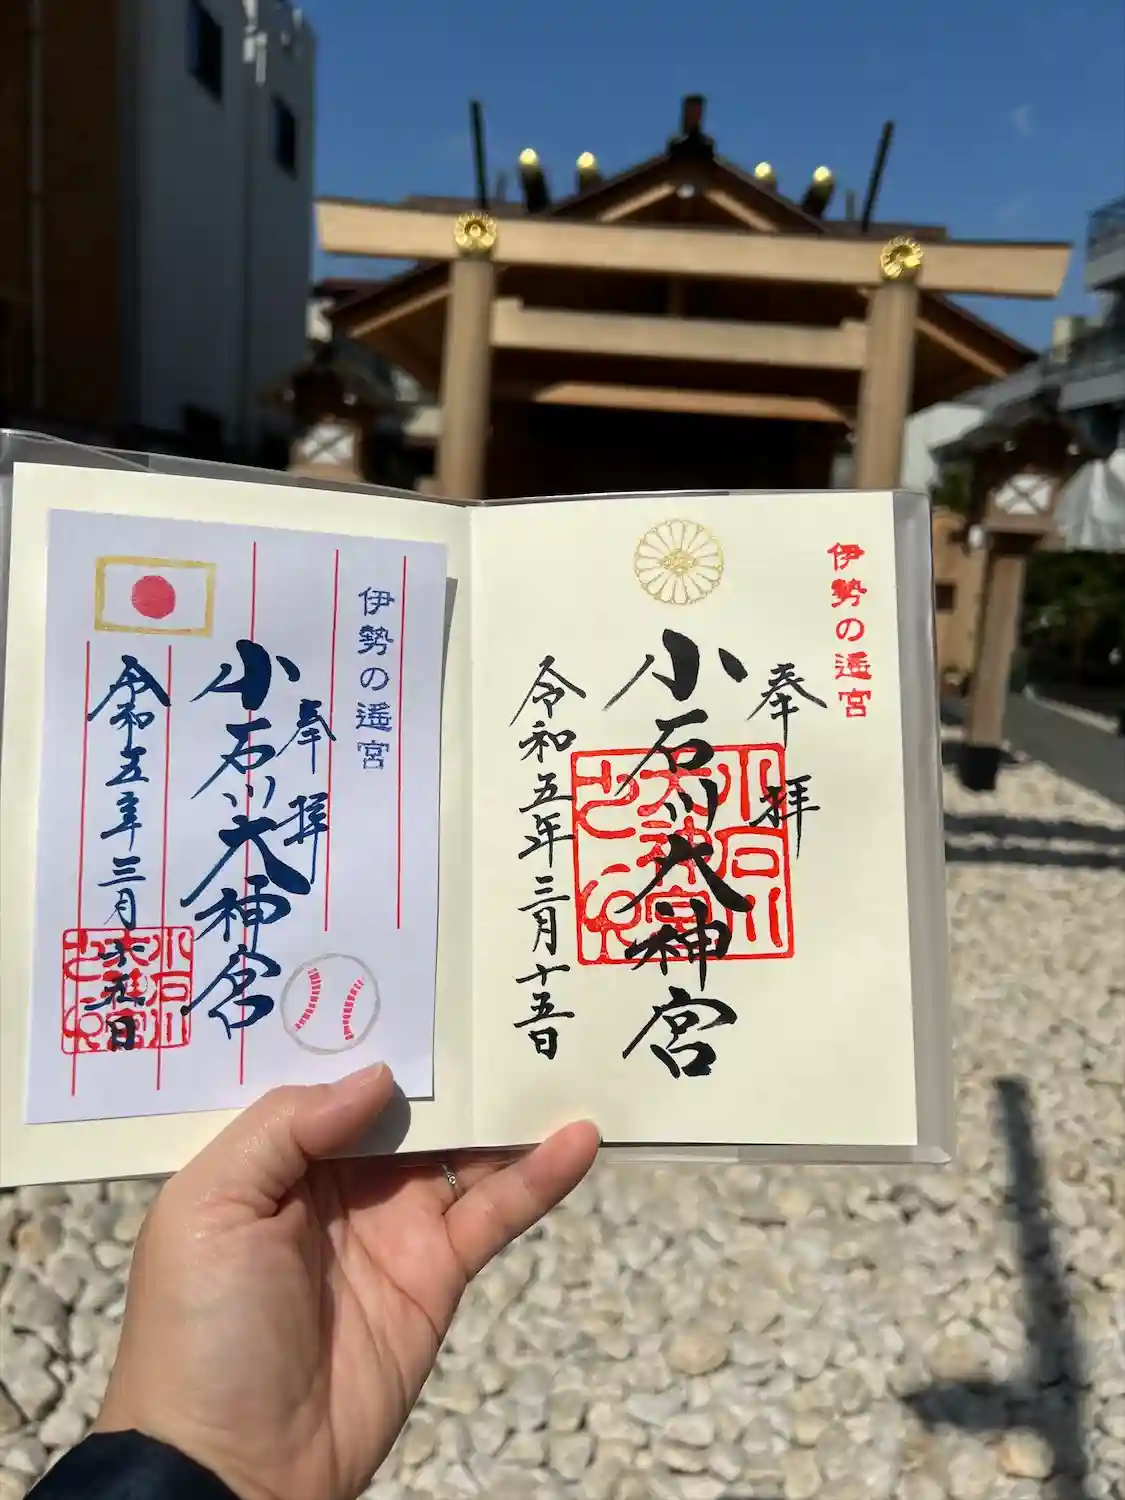 伊勢の遥宮
奉拝
小石川大神宮
令和五年三月十五日
小石川
大神宮
伊勢の遙宮
奉拝
小石川大神宮
令和五年三月十五日
小石川
大神宮
之印